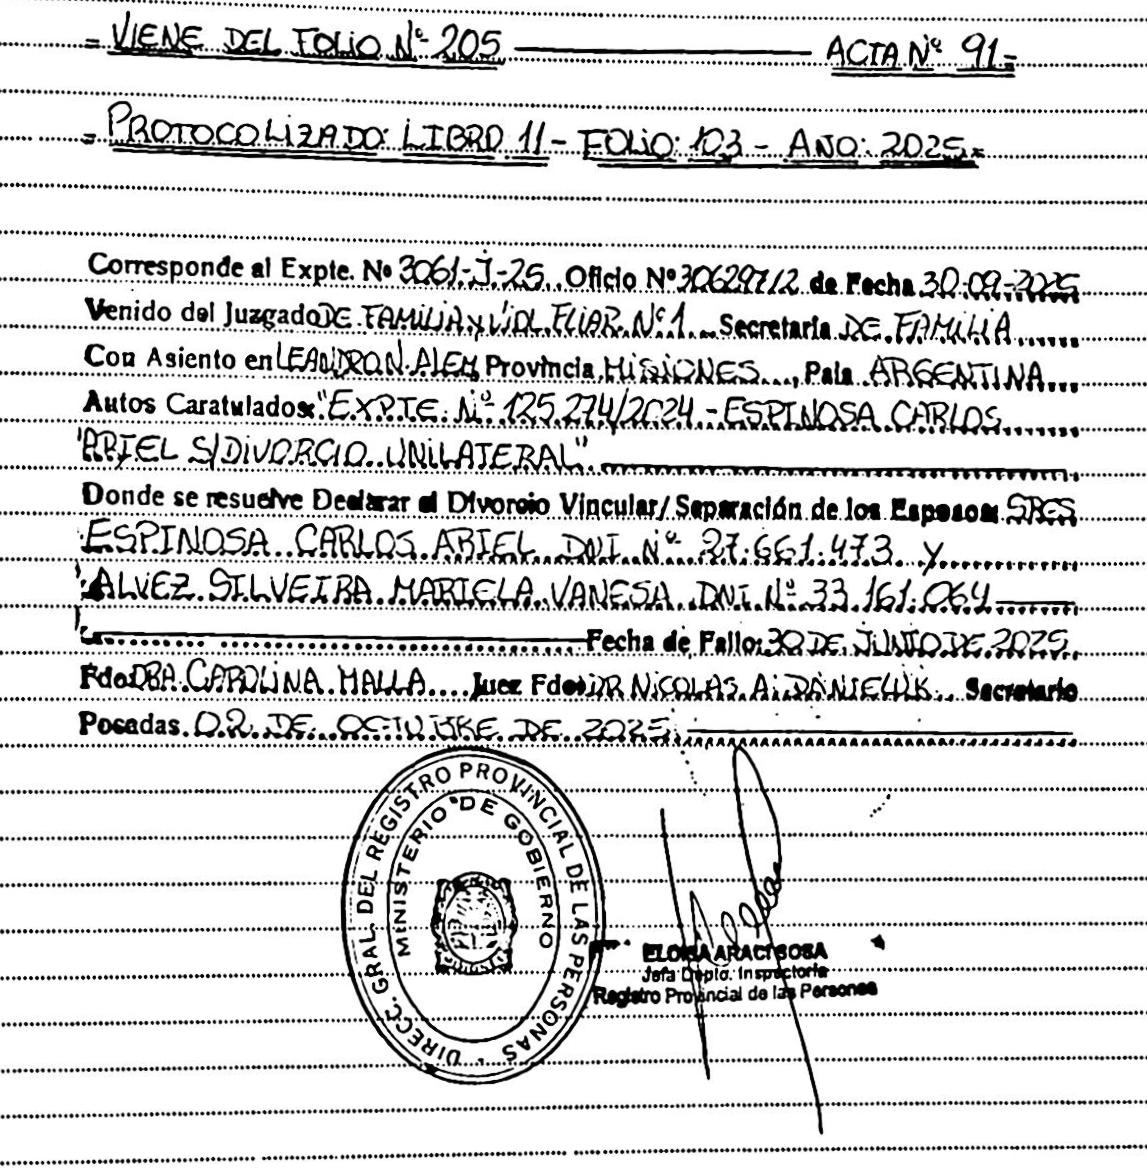 = VIENE DEL FOLIO Nº 205 ACTA Nº 91=
= PROTOCOLIZADO: LIBRO 11 - FOLIO: 103 - AÑO: 2025=
Corresponde al Expte. Nº 3061-J-25 Oficio Nº 30629712 de Fecha 30-09-2025
Venido del Juzgado DE FAMILIA y VIOL. FLIAR. Nº 1 Secretaría DE FAMILIA
Con Asiento en LEANDRO N. ALEM Provincia MISIONES, País ARGENTINA
Autos Caratulados: "EXPTE. Nº 125.274/2024 - ESPINOSA CARLOS
ARIEL S/ DIVORCIO UNILATERAL"
Donde se resuelve Declarar el Divorcio Vincular/ Separación de los Esposos: SRES
ESPINOSA CARLOS ARIEL DNI Nº 27.661.473 y
ALVEZ SILVEIRA MARIELA VANESA DNI Nº 33.161.064
Fecha de Fallo: 30 DE JUNIO DE 2025
Fdo: DRA. CAROLINA MALLA Juez Fdo: DR NICOLAS A. DANIELUK Secretario
Posadas 02 DE OCTUBRE DE 2025
DIRECC. GRAL. DEL REGISTRO PROVINCIAL DE LAS PERSONAS
MINISTERIO DE GOBIERNO
ELOISA ARACI SOSA
Jefa Depto. Inspectoría
Registro Provincial de las Personas